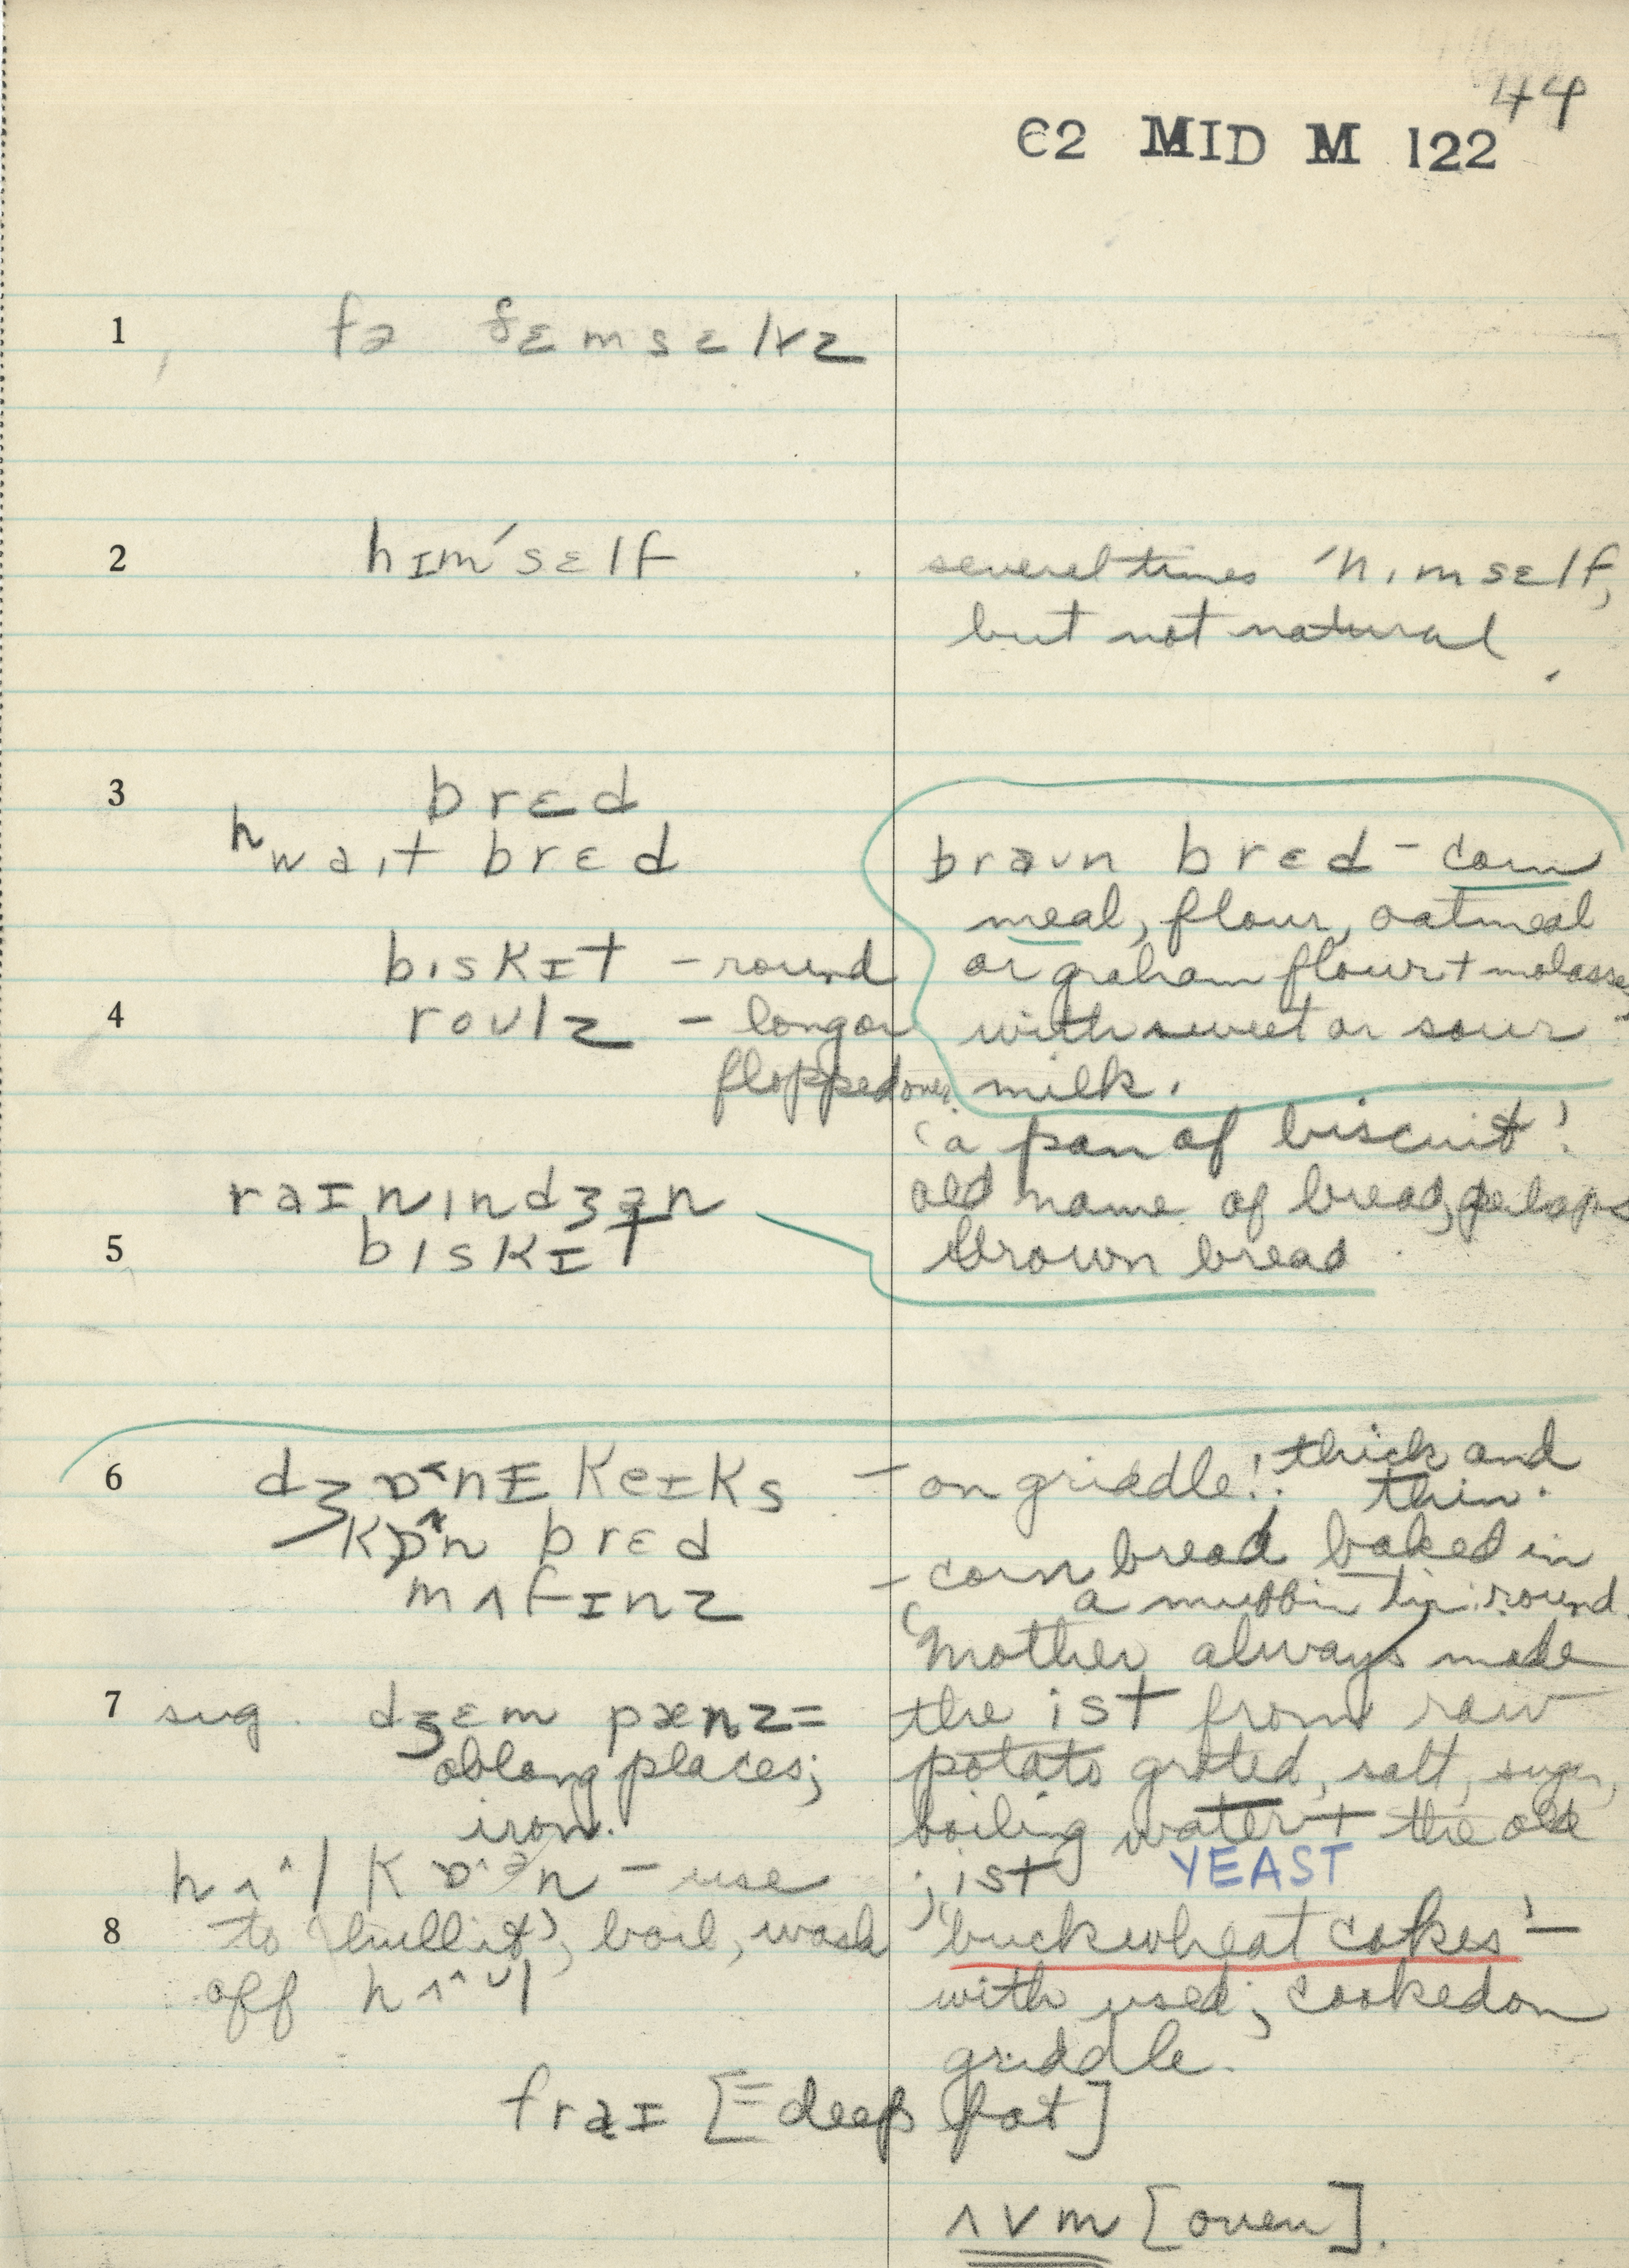 44
C2 MID M 122
1 fə ðɛmsɛlvz
2 hɪm'sɛlf several times 'hɪmsɛlf,
but not natural
3 brɛd
hwaɪt brɛd braʊn brɛd - corn
meal, flour, oatmeal
bɪskɪt - round or graham flour + molasses
4 roʊlz - longer with sweet or sour
flopped ones. milk.
'a pan of biscuit'
raɪnɪndʒən old name of bread, perhaps
5 bɪskɪt brown bread
6 dʒɒ˂nɪ keɪks - on griddle!; thick and
thin.
kɒ^n brɛd
- corn bread baked in
mʌfɪnz a muffin tin: round.
'Mother always made
7 sug. dʒɛm pænz = the ist from raw
oblong places; potato grated, salt, sugar,
iron. boiling water + the old
hʌ^l kɒ^ən - use jist YEAST
8 to 'hull it', boil, wash 'buckwheat cakes' -
off hʌ^ʊl with used; cooked on
griddle.
fraɪ [= deep fat]
ʌvm [oven].